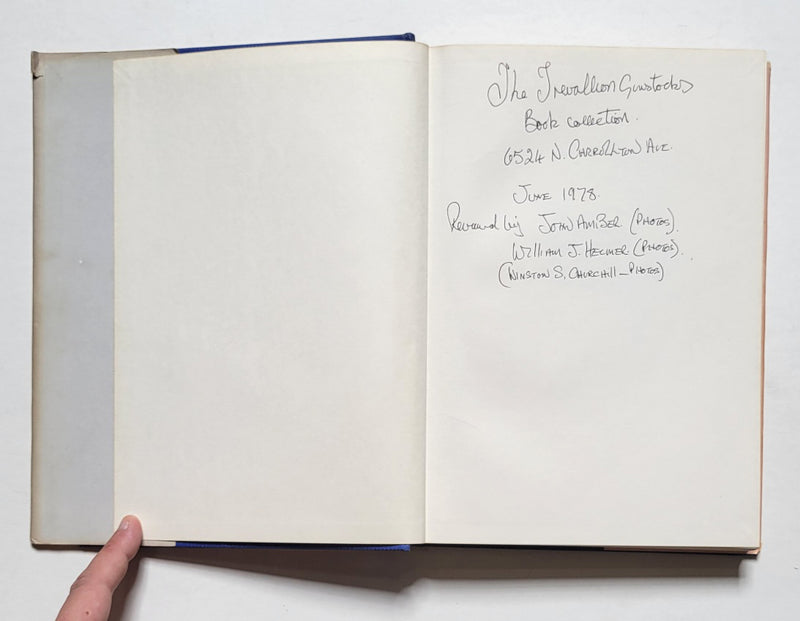 The Trevallion Gunstocks
Book collection.
6524 N. CARROLLTON AVE.
JUNE 1978.
Reviewed by JOHN AMBER (PHOTOS).
WILLIAM J. HELMER (PHOTOS).
(WINSTON S. CHURCHILL – PHOTOS)